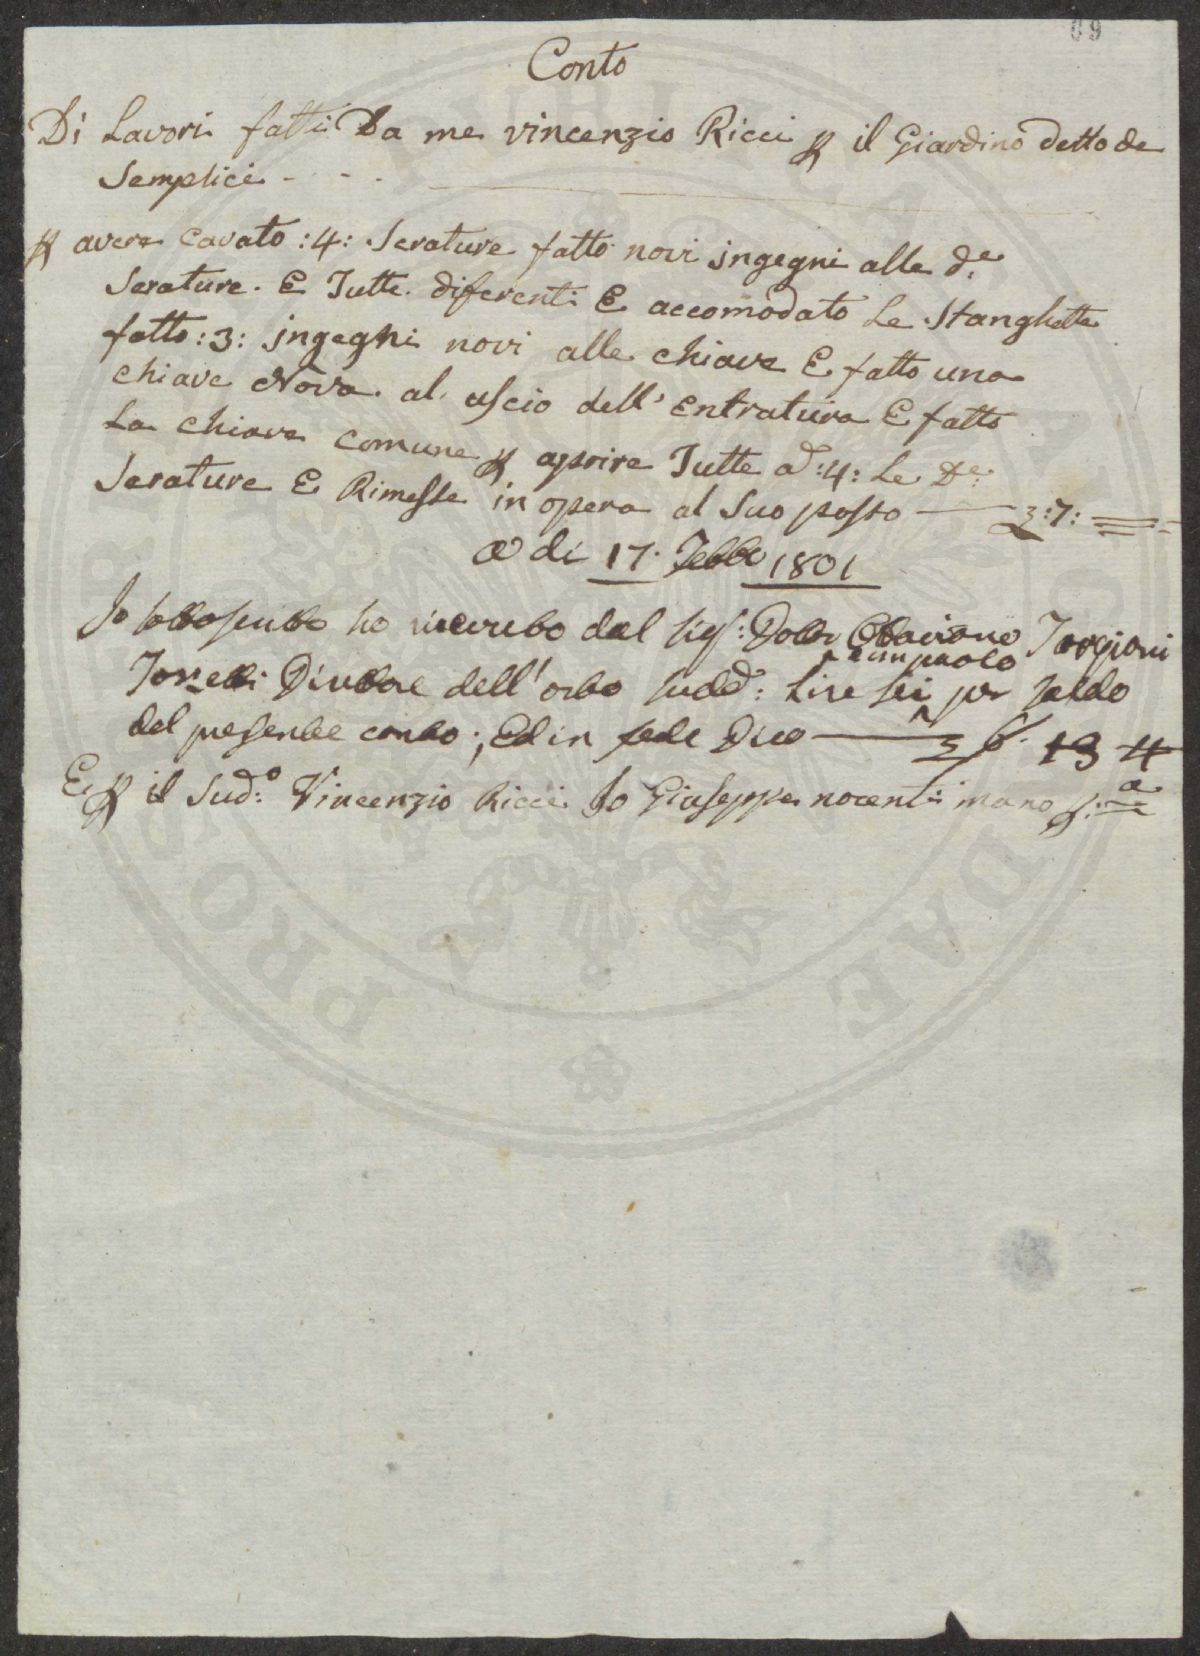 69
Conto
Di Lavori fatti Da me vincenzio Ricci p il Giardino detto de
Semplici
p avere cavato :4: Serature fatto novi ingegni alle d.e
Serature. E Tutte diferenti E accomodato Le Stanghette
fatto :3: ingegni novi alle chiave E fatto una
chiave Nova al uscio dell' entratura E fatto
La chiave comune p aprire Tutte a :4: Le De
Serature E Rimesse in opera al Suo posto :7:
a di 17. Febbo 1801
Io sottoscritto ho ricevuto dal Sig: Dottr Ottaviano Targioni
e un paolo
Tozzetti Direttore dell' orto sudd: Lire sei per saldo
del presente conto; Ed in fede Dico 6. 13 4
E p il Sud:o Vincenzio Ricci Io Giuseppe nocenti mano p:a
PRO DAE